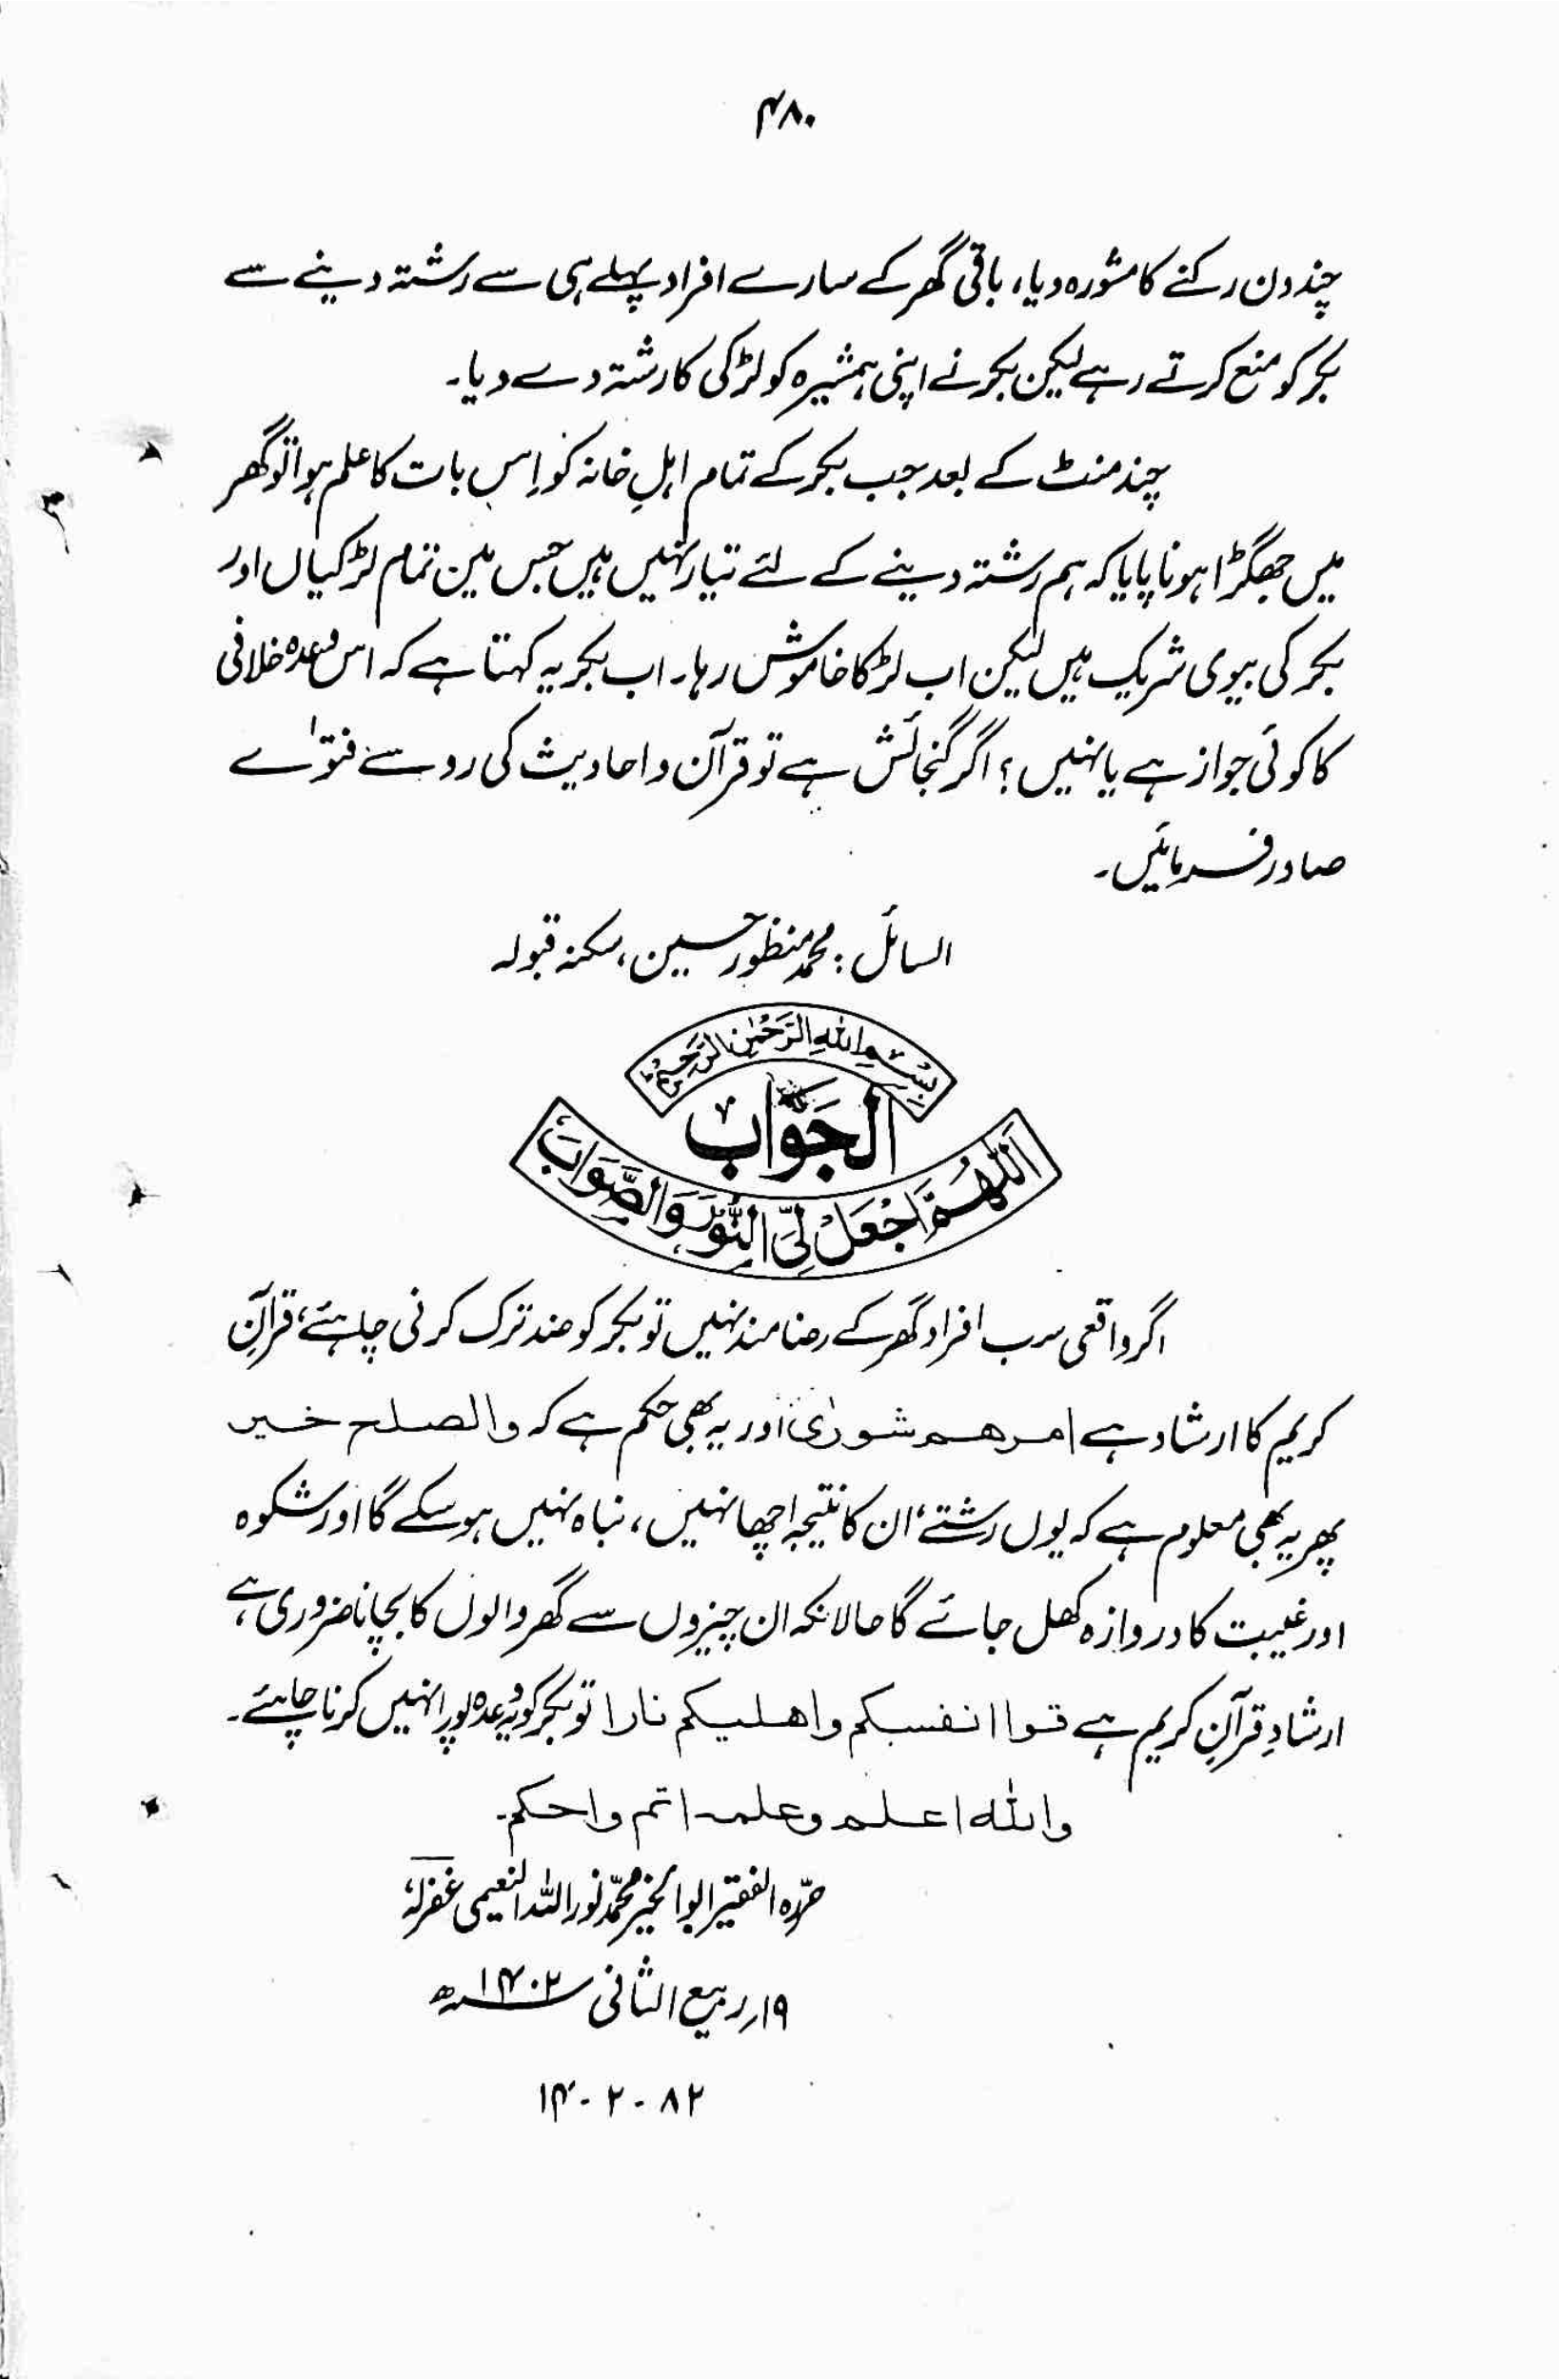 ۴۸۰
چند دن رکنے کا مشورہ دیا، باقی گھر کے سارے افراد پہلے ہی سے رشتہ دینے سے
بکر کو منع کرتے رہے لیکن بکر نے اپنی ہمشیرہ کو لڑکی کا رشتہ دے دیا۔
چند منٹ کے بعد جب بکر کے تمام اہلِ خانہ کو اِس بات کا علم ہوا تو گھر
میں جھگڑا ہونا پایا کہ ہم رشتہ دینے کے لئے تیار نہیں ہیں جس میں تمام لڑکیاں اور
بکر کی بیوی شریک ہیں لیکن اب لڑکا خاموش رہا۔ اب بکر یہ کہتا ہے کہ اس وعدہ خلافی
کا کوئی جواز ہے یا نہیں؟ اگر گنجائش ہے تو قرآن و احادیث کی رو سے فتوٰے
صادر فرمائیں۔
السائل: محمد منظور حسین، سکنہ قبولہ
بِسْمِ اللهِ الرَّحْمٰنِ الرَّحِيْمِ
الجَوَابُ
اَللّٰهُمَّ اجْعَلْ لِیَ النُّوْرَ وَالصَّوَابَ
اگر واقعی سب افراد گھر کے رضامند نہیں تو بکر کو ضد ترک کرنی چاہئے، قرآنِ
کریم کا ارشاد ہے امرهم شورٰی اور یہ بھی حکم ہے کہ والصلح خیر
پھر یہ بھی معلوم ہے کہ یوں رشتے، ان کا نتیجہ اچھا نہیں، نباہ نہیں ہو سکے گا اور شکوہ
اور غیبت کا دروازہ کھل جائے گا حالانکہ ان چیزوں سے گھر والوں کا بچانا ضروری ہے،
ارشادِ قرآنِ کریم ہے قوا انفسکم واهلیکم نارا تو بکر کو یہ وعدہ پورا نہیں کرنا چاہئے۔
والله اعلم وعلمه اتم واحکم۔
حرّرہ الفقیر ابوالخیر محمّد نور اللہ النعیمی غفرلہٗ
۱۹؍ ربیع الثانی ۱۴۰۲ھ
۱۴-۲-۸۲